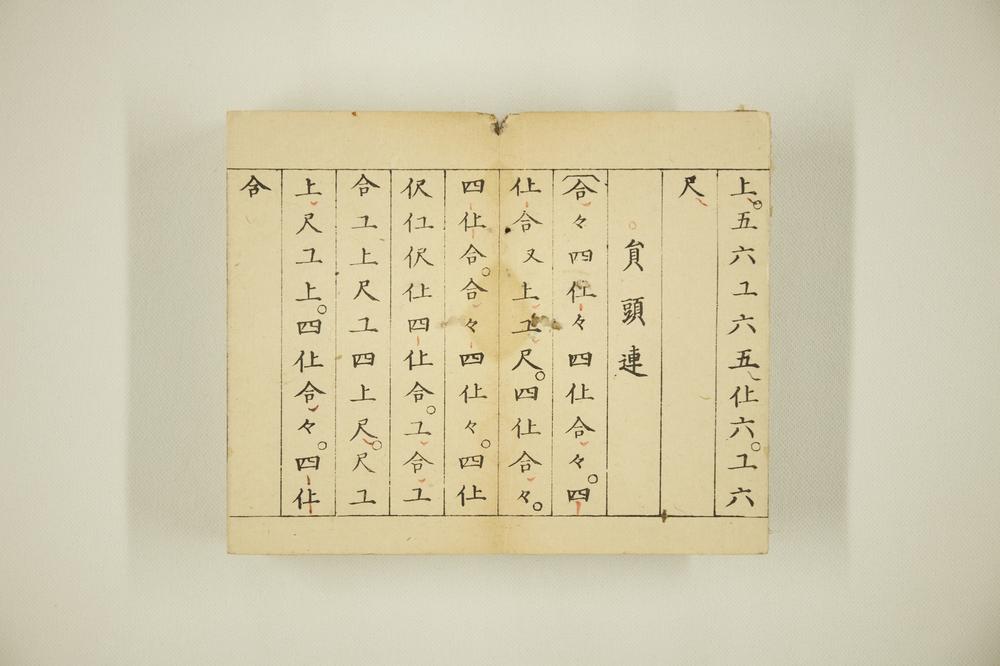 上五六工六五仩六工六
尺
員頭連
合々四仩々四仩合々四
仩合又上工尺四仩合々
四仩合合々四仩々四仩
伬仜伬仩四仩合工合工
合工上尺工四上尺尺工
上尺工上四仩合々四仩
合